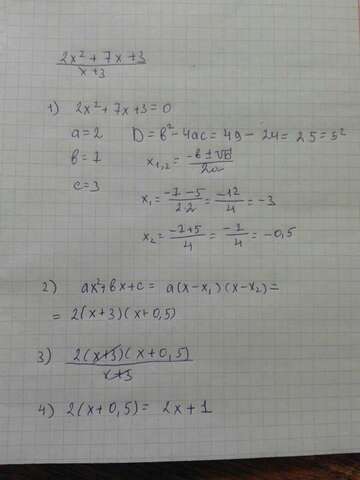 2x² + 7x + 3
x + 3
1) 2x² + 7x + 3 = 0
a = 2 D = b² - 4ac = 49 - 24 = 25 = 5²
b = 7 x₁,₂ = -b ± √D / 2a
c = 3 x₁ = -7 - 5 / 2·2 = -12 / 4 = -3
x₂ = -7 + 5 / 4 = -2 / 4 = -0,5
2) ax² + bx + c = a(x - x₁)(x - x₂) =
= 2(x + 3)(x + 0,5)
3) 2(x + 3)(x + 0,5)
x + 3
4) 2(x + 0,5) = 2x + 1